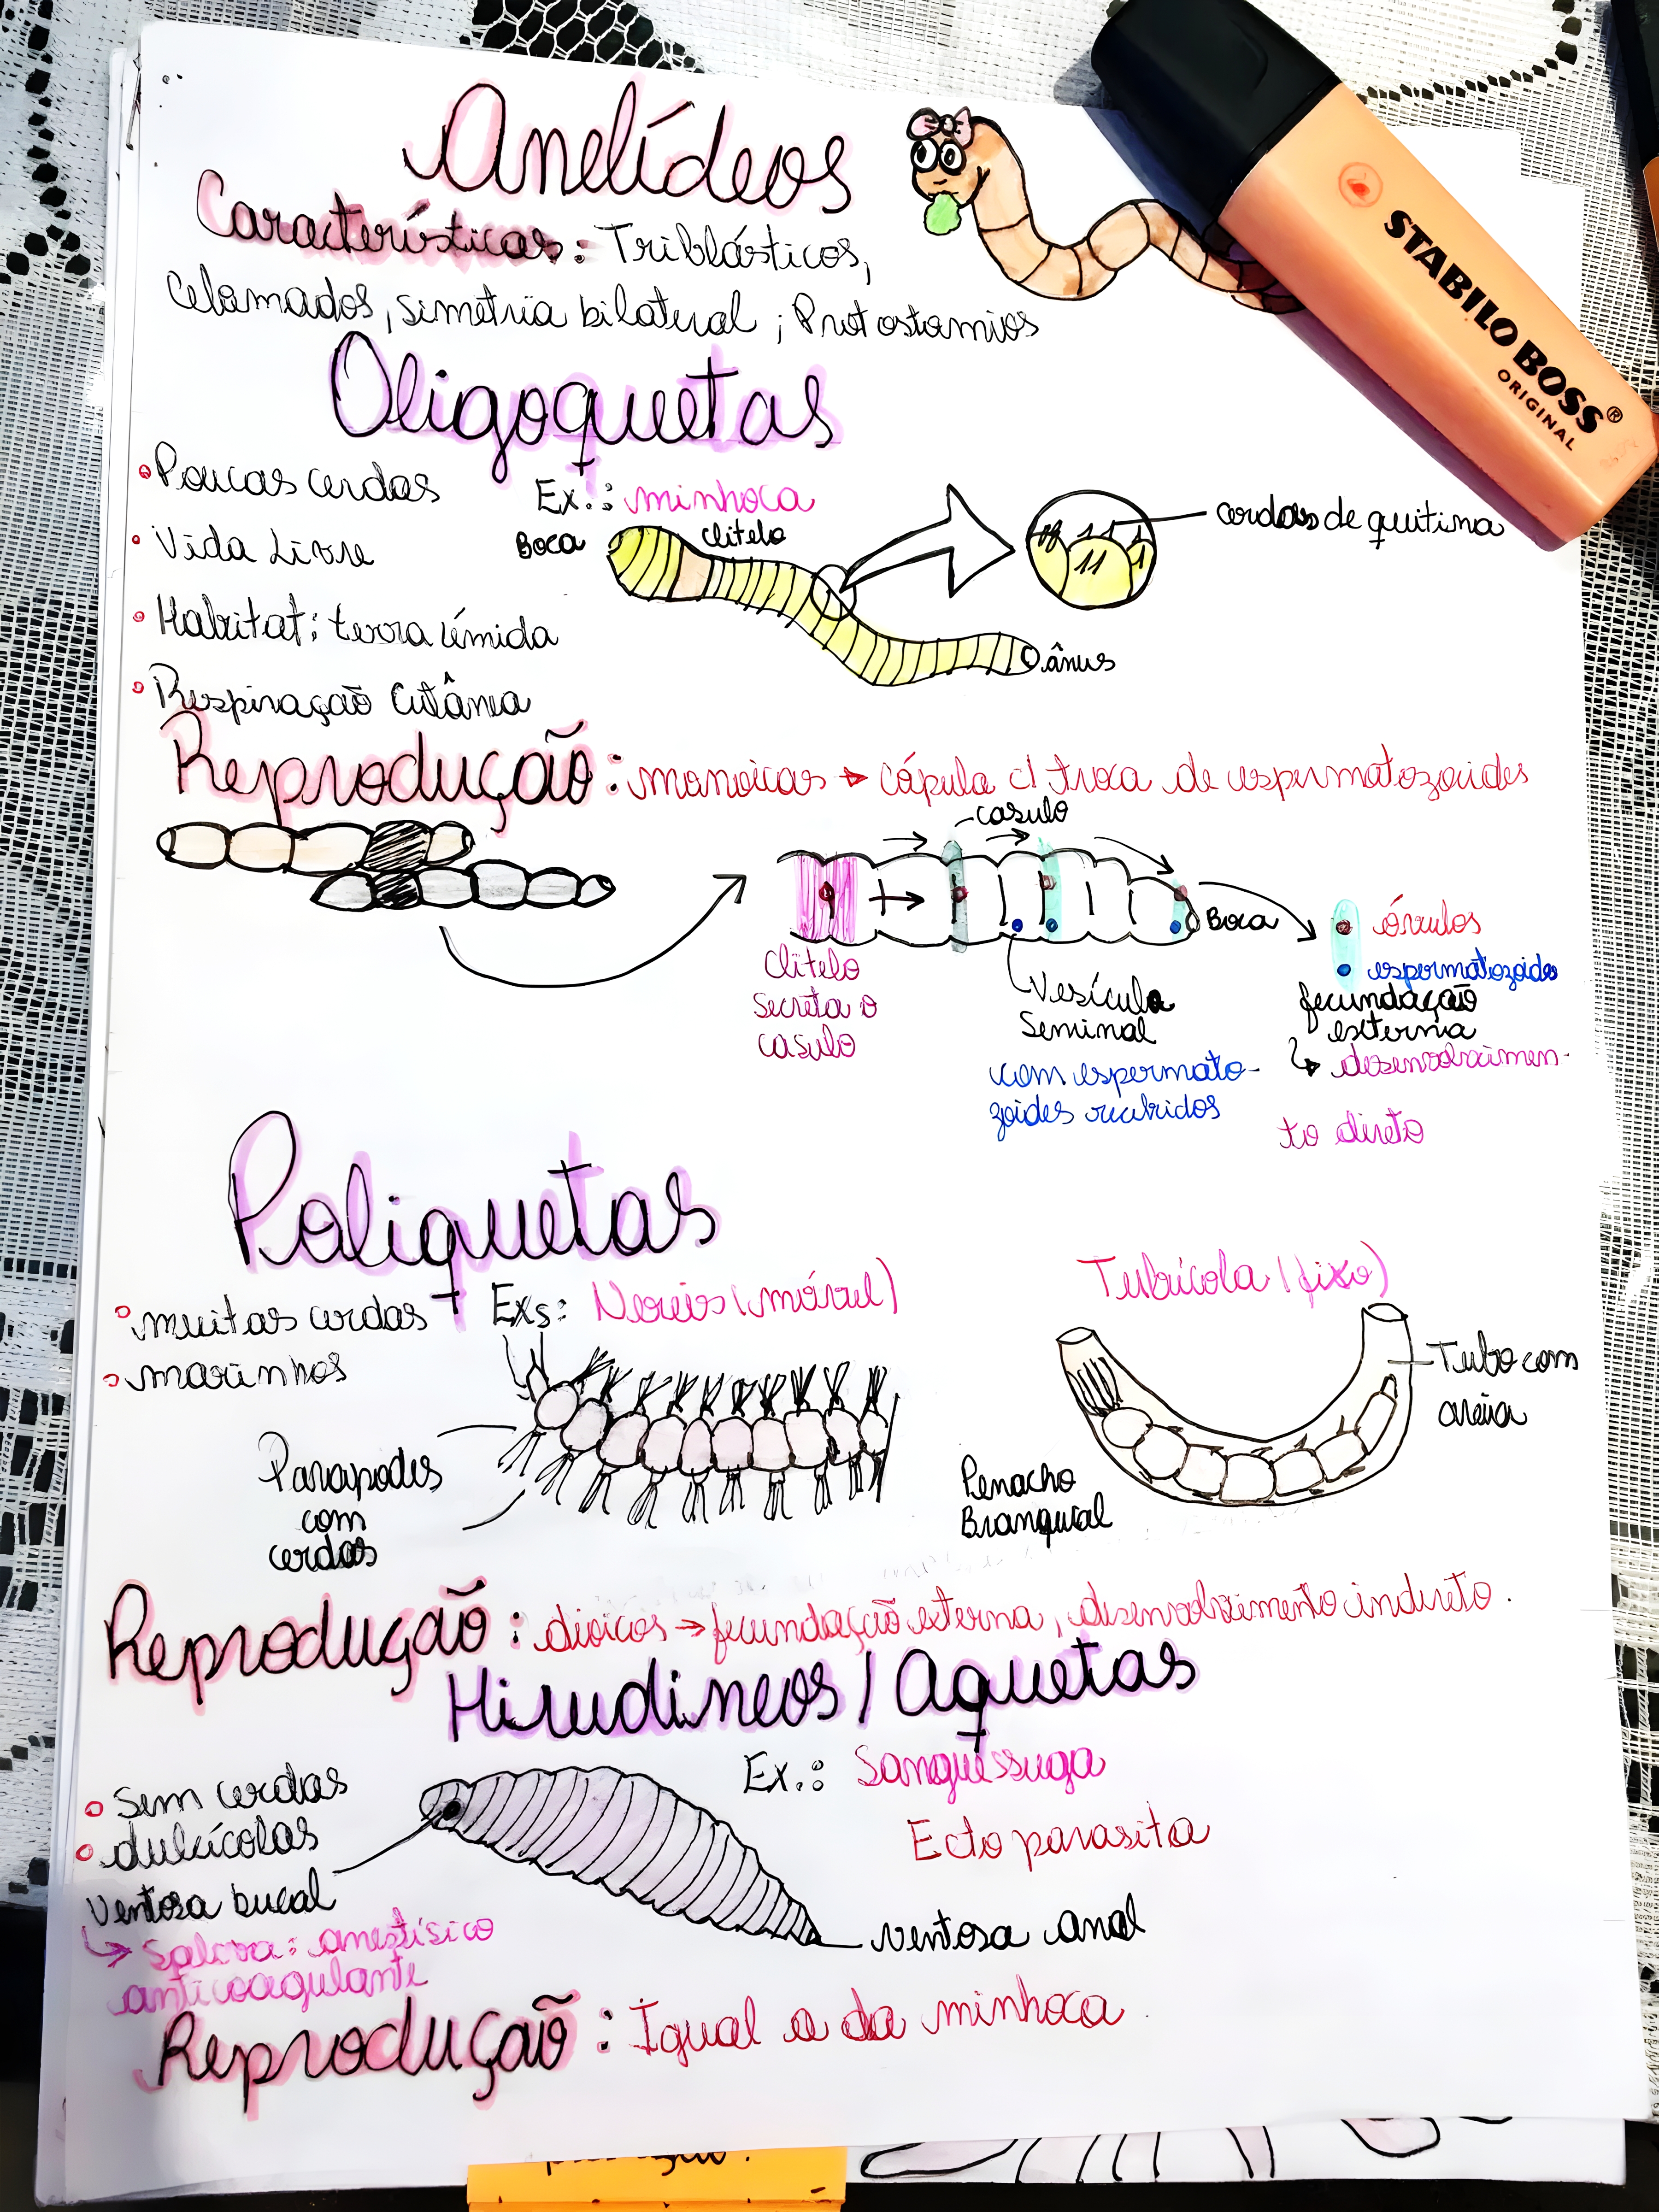 Anelídeos
Características: Triblásticos,
Celomados, simetria bilateral ; Protostomios
STABILO BOSS®
ORIGINAL
Oligoquetas
Poucas cerdas
Ex.: minhoca
Vida Livre
Boca
clitelo
cerdas de quitina
Habitat: terra úmida
ânus
Respiração Cutânea
Reprodução: monoicas → cópula c/ troca de espermatozoides
casulo
Boca
óvulos
espermatozoide
Clitelo
secreta o
casulo
Vesícula
Seminal
com espermato-
zoides recebidos
fecundação
externa
↳ desenvolvimen-
to direto
Poliquetas
muitas cerdas
Exs: Nereis (móvel)
Tubícola (fixo)
marinhos
Tubo com
areia
Parapodes
com
cerdas
Penacho
Branquial
Reprodução: dioicos → fecundação externa, desenvolvimento indireto.
Hirudineos / Aquetas
Ex.: Sanguessuga
Sem cerdas
dulcícolas
Ectoparasita
Ventosa bucal
↳ Saliva: anestésico
anticoagulante
ventosa anal
Reprodução: Igual a da minhoca